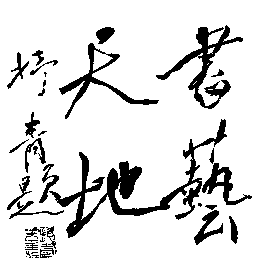 書藝
天地
青題